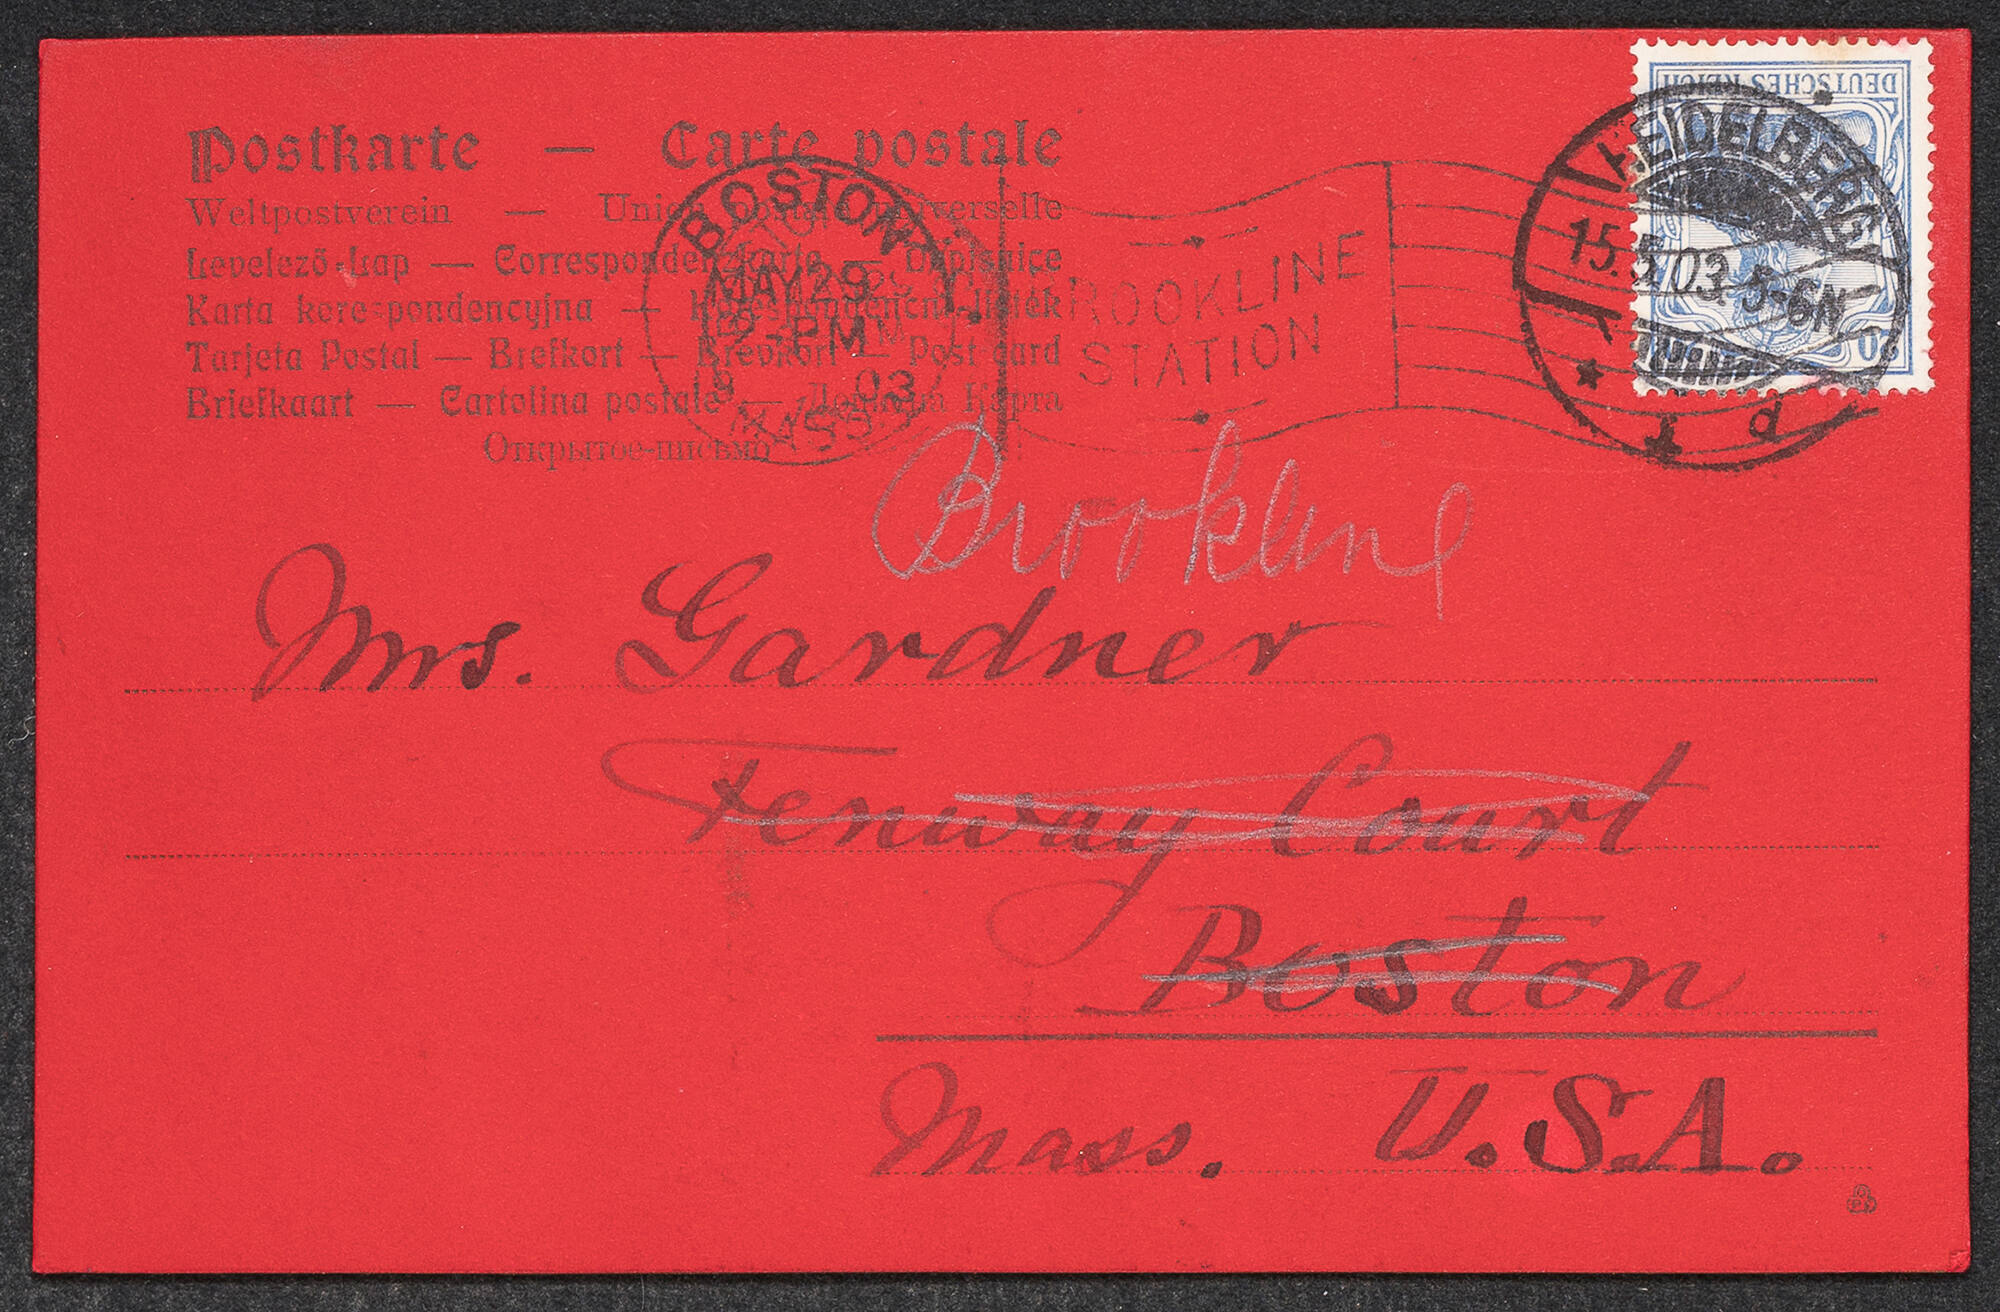 DEUTSCHES REICH
20
HEIDELBERG
15.5.03. 5-6N
* 1 d
Postkarte — Carte postale
Weltpostverein — Union postale universelle
Levelező-Lap — Correspondenzkarte — Dopisnice
Karta korespondencyjna — Korespondenční lístek
Tarjeta Postal — Brefkort — Brevkort — Post card
Briefkaart — Cartolina postale — Дописна Карта
Открытое-письмо
BOSTON
MAY 29
PM
03
MASS.
BROOKLINE
STATION
Brookline
Mrs. Gardner
Fenway Court
Boston
Mass. U.S.A.